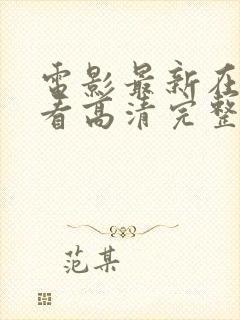 电影最新在
看高清完整
范某